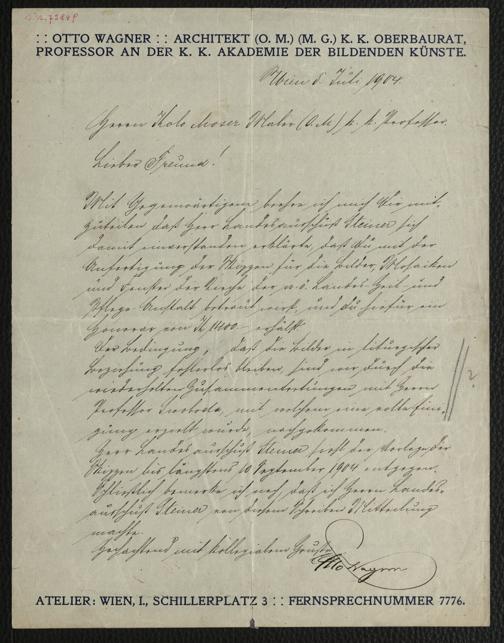 : : OTTO WAGNER : : ARCHITEKT (O. M.) (M. G.) K. K. OBERBAURAT,
PROFESSOR AN DER K. K. AKADEMIE DER BILDENDEN KÜNSTE.
Wien 5. Juli 1904.
Herrn Kolo Moser Maler (O.M.) k. k. Professor.
Lieber Freund!
Mit Gegenwärtigem beehre ich mich Dir mit-
zuteilen daß Herr Landesausschuß Steiner sich
damit einverstanden erklärte, daß Du mit der
Anfertigung der Skizzen für die Bilder, Mosaiken
und Fenster der Kirche der n. ö. Landes Heil und
Pflege-Anstalt betraut wirst, und Du hiefür ein
Honorar von K erhälst
Der Bedingung, daß die Bilder in liturgischer
Beziehung fehlerlos bleiben, sind wir durch die
wiederholten Zusammentretungen mit Herrn
Professor Swoboda, mit welchem eine volle Eini-
gung erzielt wurde, nachgekommen.
Herr Landesausschuß Steiner sieht der Vorlage der
Skizzen bis längstens 10 September 1904 entgegen.
Schließlich bemerke ich noch, daß ich Herrn Landes-
ausschuß Steiner von diesem Schreiben Mitteilung
machte.
Hochachtend mit kollegialem Gruße
Otto Wagner
ATELIER: WIEN, I., SCHILLERPLATZ 3 : : FERNSPRECHNUMMER 7776.